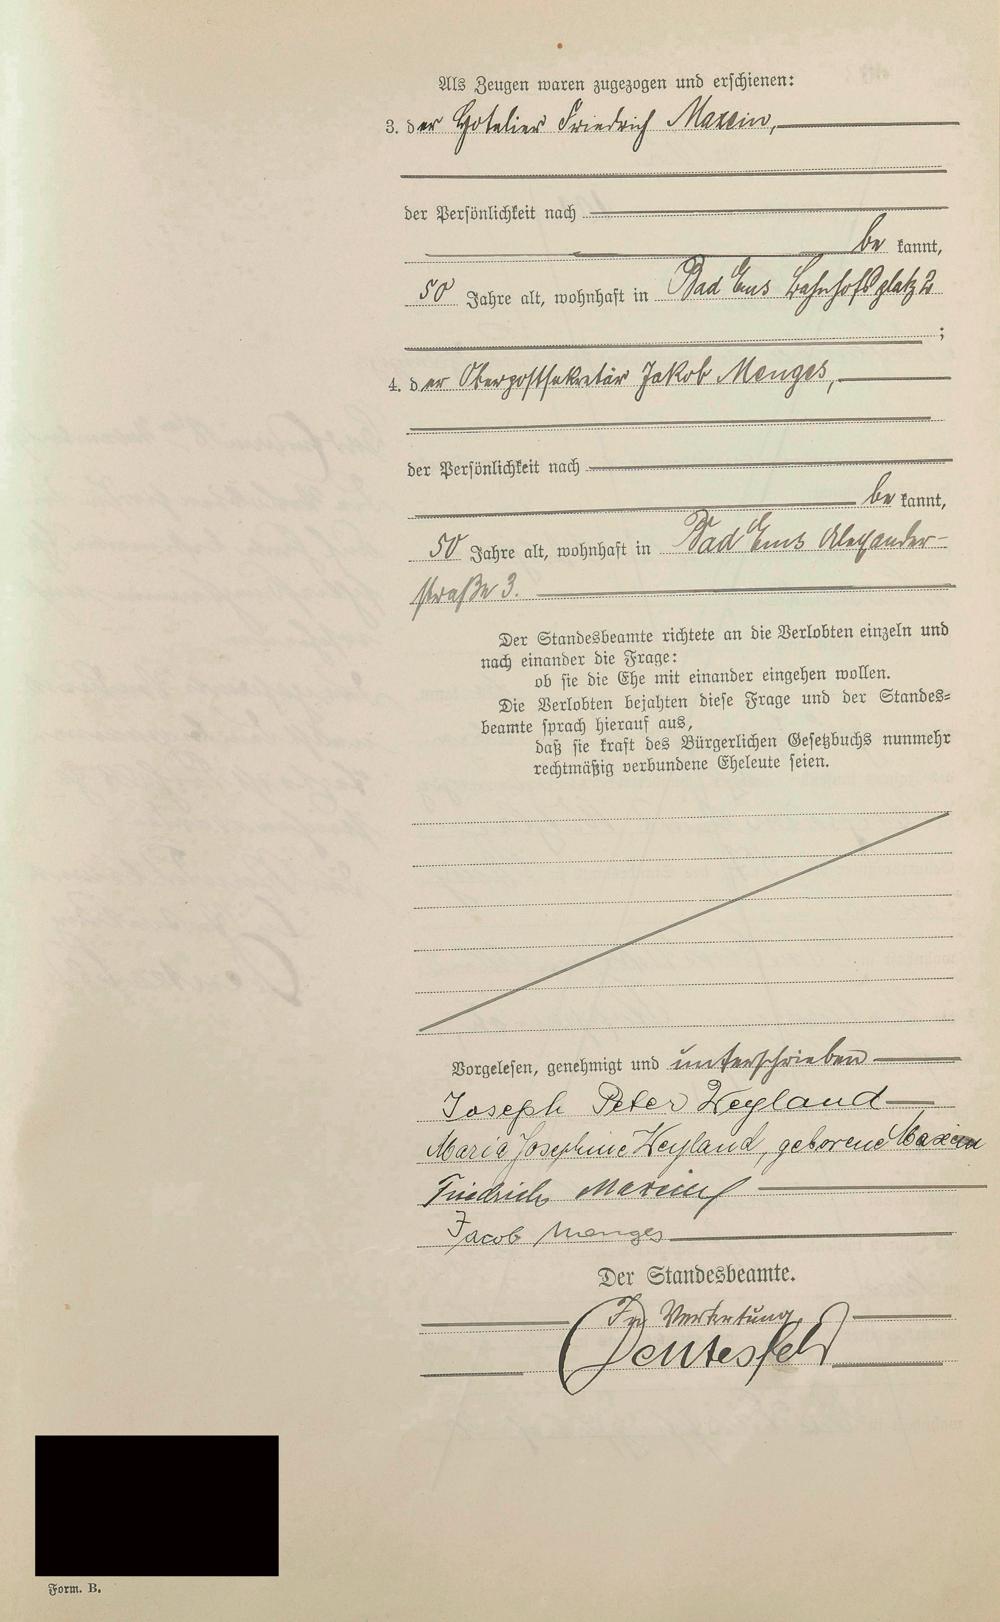 Als Zeugen waren zugezogen und erschienen:
3. der Hotelier Friedrich Maxein,
der Persönlichkeit nach
be kannt,
50 Jahre alt, wohnhaft in Bad Ems Bahnhofsplatz 2
;
4. der Oberpostsekretär Jakob Menges,
der Persönlichkeit nach
be kannt,
50 Jahre alt, wohnhaft in Bad Ems Alexander-
straße 3.
Der Standesbeamte richtete an die Verlobten einzeln und
nach einander die Frage:
ob sie die Ehe mit einander eingehen wollen.
Die Verlobten bejahten diese Frage und der Standes-
beamte sprach hierauf aus,
daß sie kraft des Bürgerlichen Gesetzbuchs nunmehr
rechtmäßig verbundene Eheleute seien.
Vorgelesen, genehmigt und unterschrieben
Joseph Peter Weyland
Maria Josephine Weyland, geborene Maxein
Friedrich Maxein
Jacob Menges
Der Standesbeamte.
In Vertretung
Form. B.